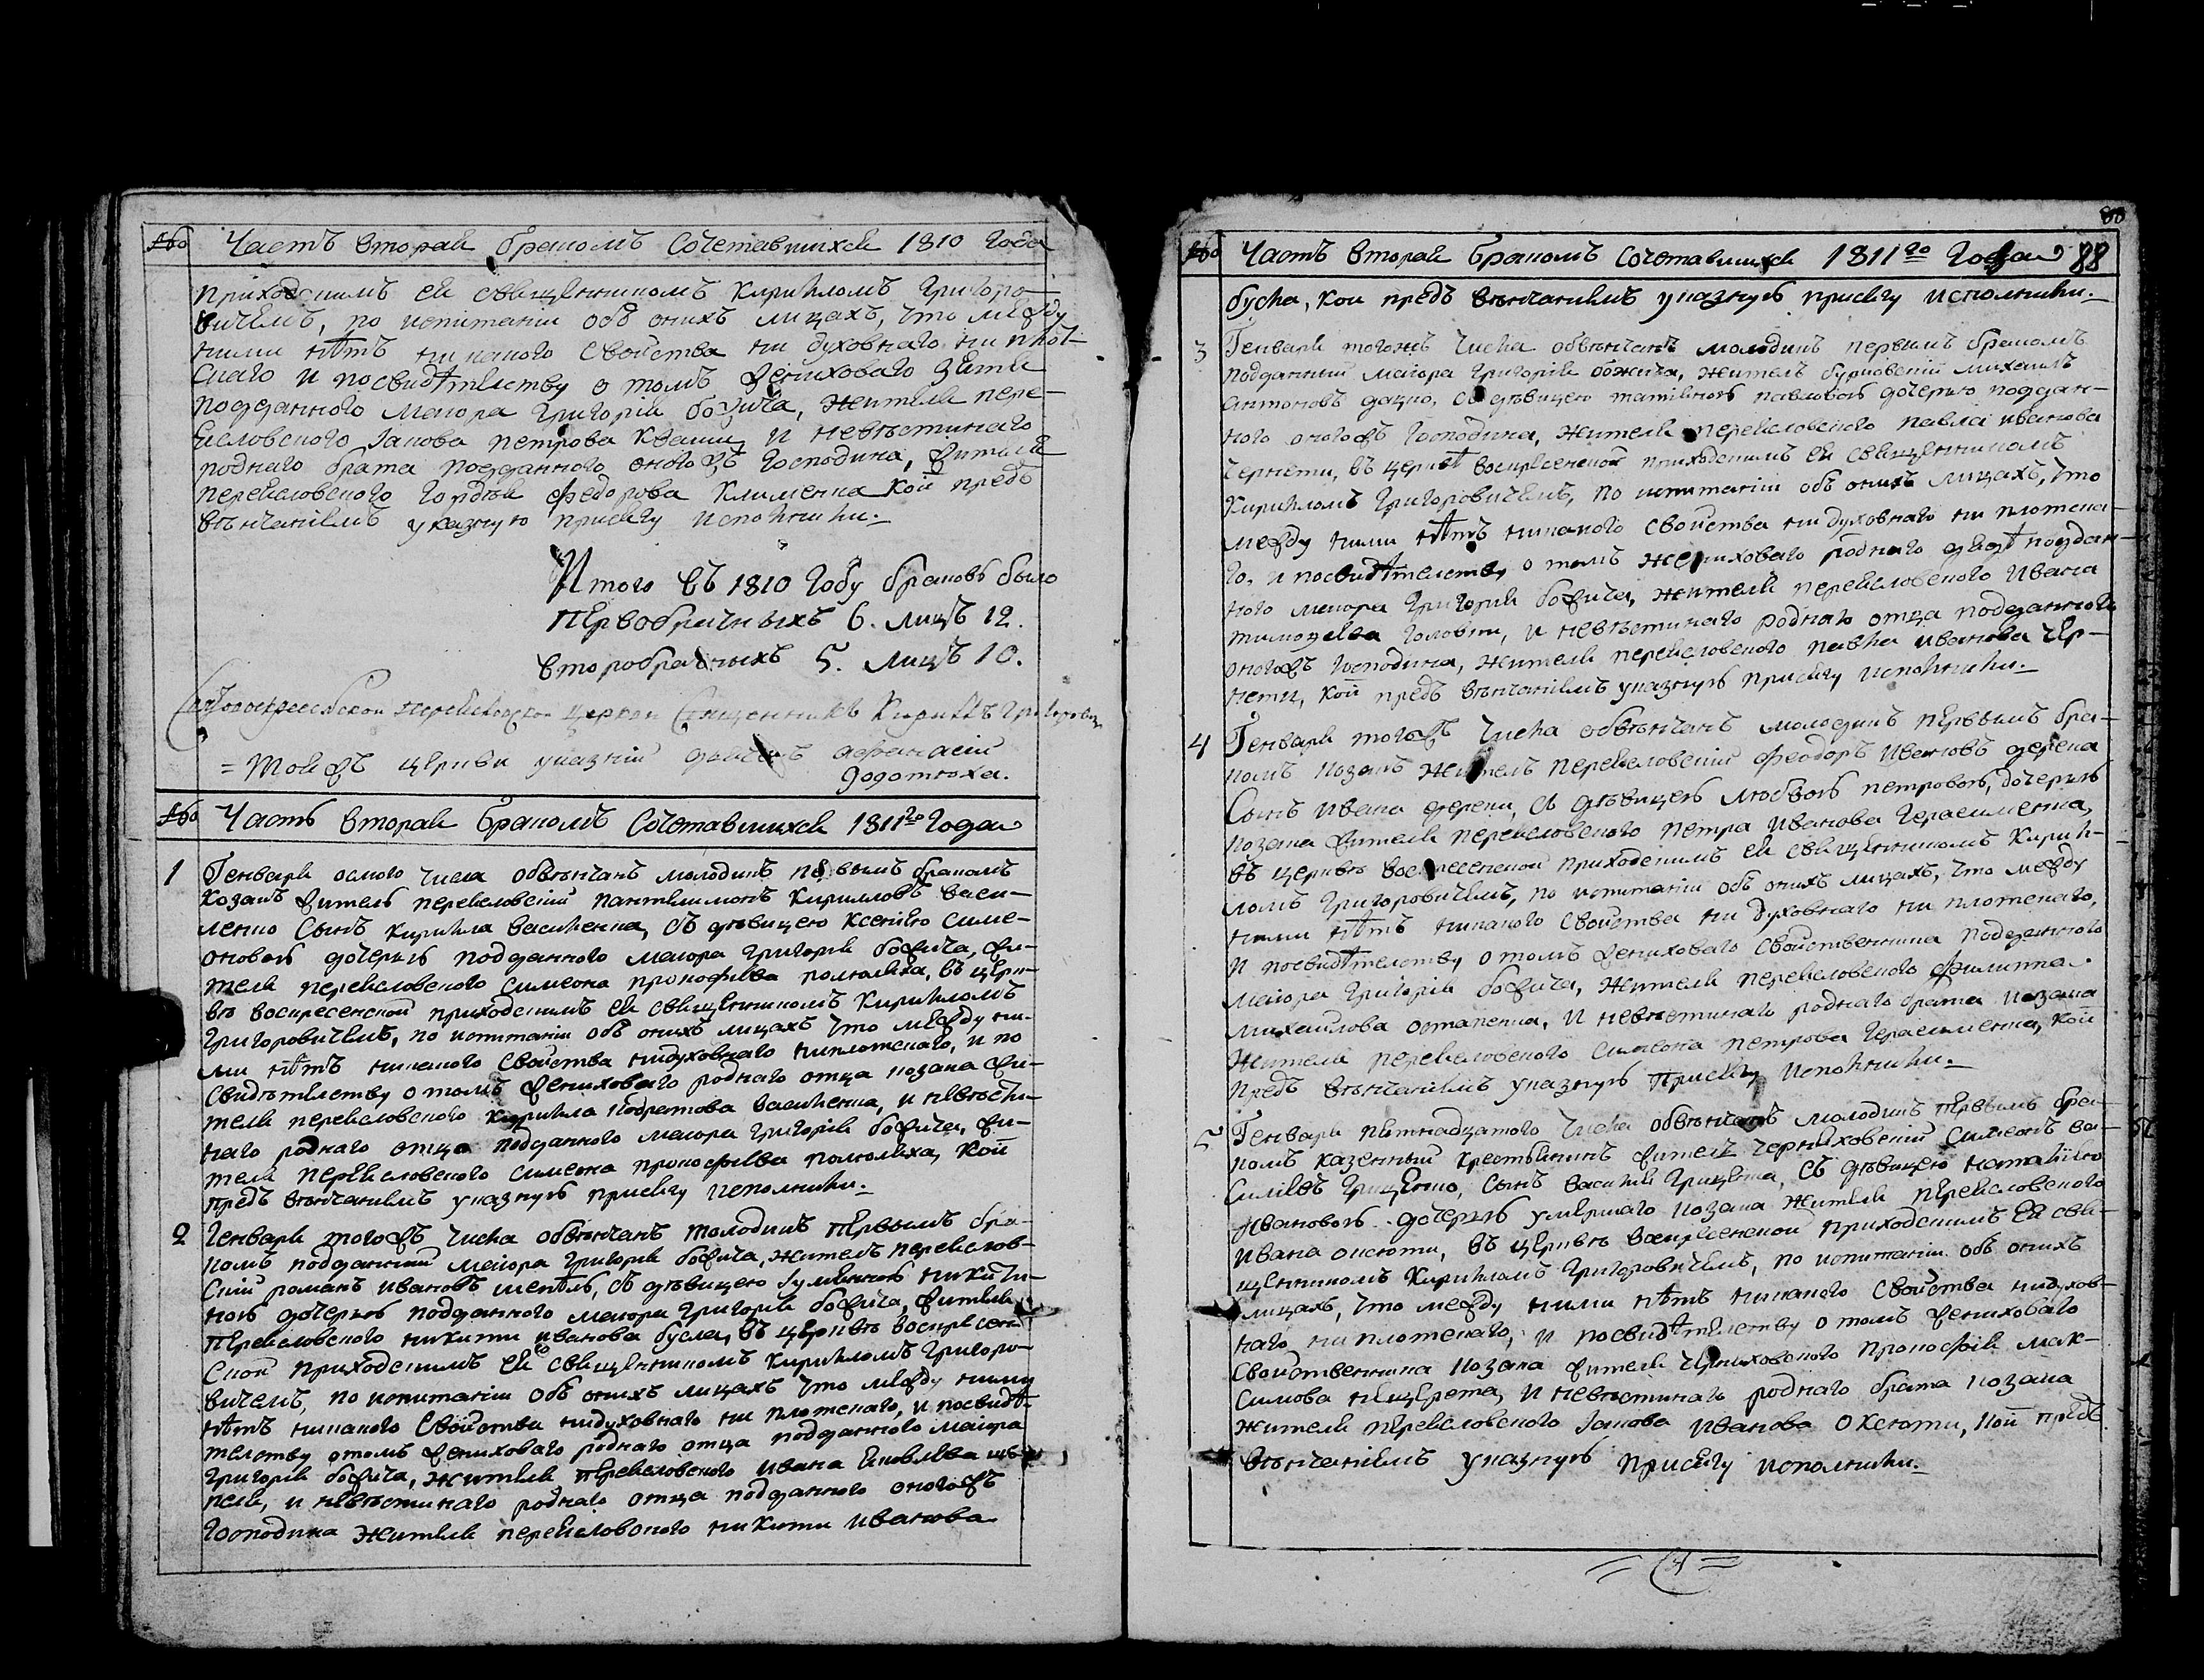 № Часть вторая бракомъ сочетавшихся 1810 года
приходскимъ ея священникомъ Кирилломъ Григоро-
вичемъ, по испитаніи объ онихъ лицахъ, что между
ними нѣтъ никакого свойства ни духовнаго ни плот-
скаго и посвидѣтелству о томъ женихового зятя
подданного маіора Григорія божича, жителя пере-
ясловского Іакова петрова Кваши, и невѣстинаго
роднаго брата подданного оногожъ Господина, жителя
переясловского Гордѣя Федорова Клименка кои предъ
вѣнчаніемъ указную присягу исполнили.
Итого въ 1810 Году браковъ было
первобрачныхъ 6. лицъ 12.
второбрачныхъ 5. лицъ 10.
Святовоскресенской переясловской церкви Священникъ Кириллъ Григорович
= Тоей жъ церкви указній дячокъ афанасій
додотюха.
№ Часть вторая бракомъ сочетавшихся 1811го Года
1 Генваря осмого числа обвѣнчанъ молодикъ первымъ бракомъ
козакъ житель переясловскій пантелимонъ Кирилловъ васи-
ленко сынъ кирилла василенка, съ дѣвицею ксеніею симе-
оновою дочерью подданного маіора Григорія божича, жи-
теля переясловского симеона прокофіева полюляха, въ церк-
вѣ воскресенской приходскимъ ея священникомъ Кирилломъ
Григоровичемъ, по испитаніи объ онихъ лицахъ что между ни-
ми нѣтъ никакого свойства нидуховнаго ниплотскаго, и по
свидѣтелству о томъ женихового роднаго отца козака жи-
теля переясловского кирилла кодратова василенка, и невѣсти-
наго роднаго отца подданного маіора Григорія божича, жи-
теля переясловского симеона прокофіева полюляха, кои
предъ вѣнчаніемъ указную присягу исполнили.
2 Генваря тогожъ числа обвѣнчанъ молодикъ первымъ бра-
комъ подданній маіора Григорія божича, житель переяслов-
скій романъ ивановъ шепѣль, съ дѣвицею гулѣяною никити-
ною дочерью подданного маіора Григорія божича, жителя
переясловского никити иванова бусла, въ церквѣ воскресен-
ской приходскимъ ея священникомъ Кирилломъ Григоро-
вичемъ, по испитаніи объ онихъ лицахъ что между ними
нѣтъ никакого свойства нидуховнаго ни плотскаго, и посвидѣ-
телству отомъ женихового роднаго отца подданного маіора
Григорія божича, жителя переясловского ивана яковлева ше-
пеля, и невѣстинаго роднаго отца подданного оногожъ
Господина жителя переясловского никити иванова
88
№ Часть вторая бракомъ сочетавшихся 1811го Года 88
бусла, кои предъ вѣнчаніемъ указную присягу исполнили.
3 Генваря тогожъ числа обвѣнчанъ молодикъ первымъ бракомъ
подданний маіора Григорія божича, житель бурковскій михаилъ
антоновъ дацко, съ дѣвицею татіяною павловою дочерью поддан-
ного оногожъ Господина, жителя переясловского павла иванова
чернети, въ церквѣ воскресенской приходскимъ ея священникомъ
Кирилломъ Григоровичемъ, по испитаніи объ онихъ лицахъ, что
между ними нѣтъ никакого свойства ни духовнаго ни плотска-
го, и посвидѣтелству о томъ женихового роднаго дядѣ поддан-
ного маіора Григорія божича, жителя переясловского Ивана
тимофеева головки, и невѣстинаго роднаго отца подданного
оногожъ Господина, жителя переясловского павла иванова чер-
нети, кои предъ вѣнчаніемъ указную присягу исполнили.
4 Генваря тогожъ числа обвѣнчанъ молодикъ первымъ бра-
комъ козакъ житель переясловскій феодоръ Ивановъ дерека
сынъ ивана дереки, съ дѣвицею любвою петровою, дочерью
козака жителя переясловского петра иванова Герасименка,
въ церквѣ воскресенской приходскимъ ея священникомъ Кирил-
ломъ Григоровичемъ, по испитаніи объ онихъ лицахъ, что между
ними нѣтъ никакого свойства ни духовнаго ни плотскаго,
И посвидѣтелству отомъ женихового свойственника подданного
маіора Григорія божича, жителя переясловского филиппа
михаилова остапенка, и невѣстинаго роднаго брата козака
жителя переясловского симеона петрова Герасименка, кои
предъ вѣнчаніемъ указную присягу исполнили.
5 Генваря пятнадцатого числа обвѣнчанъ молодикъ первымъ бра-
комъ казенный крестьянинъ житель черняховскій симеонъ ва-
силіевъ Грищенко, сынъ василія Грищенка, съ дѣвицею наталіею
ивановою дочерью умершаго козака жителя переясловского
ивана оксюти, въ церквѣ воскресенской приходскимъ ея свя-
щенникомъ Кирилломъ Григоровичемъ, по испитаніи объ онихъ
лицахъ, что между ними нѣтъ никакого свойства нидухов-
наго ни плотскаго, и посвидѣтелству о томъ женихового
свойственника козака жителя черняховского прокофія мак-
симова нещерета, и невѣстинаго роднаго брата козака
жителя переясловского Іакова иванова оксюти, кои предъ
вѣнчаніемъ указную присягу исполнили.